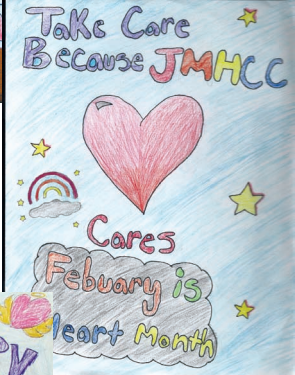 Take Care
Because JMHCC
Cares
Febuary is
Heart Month